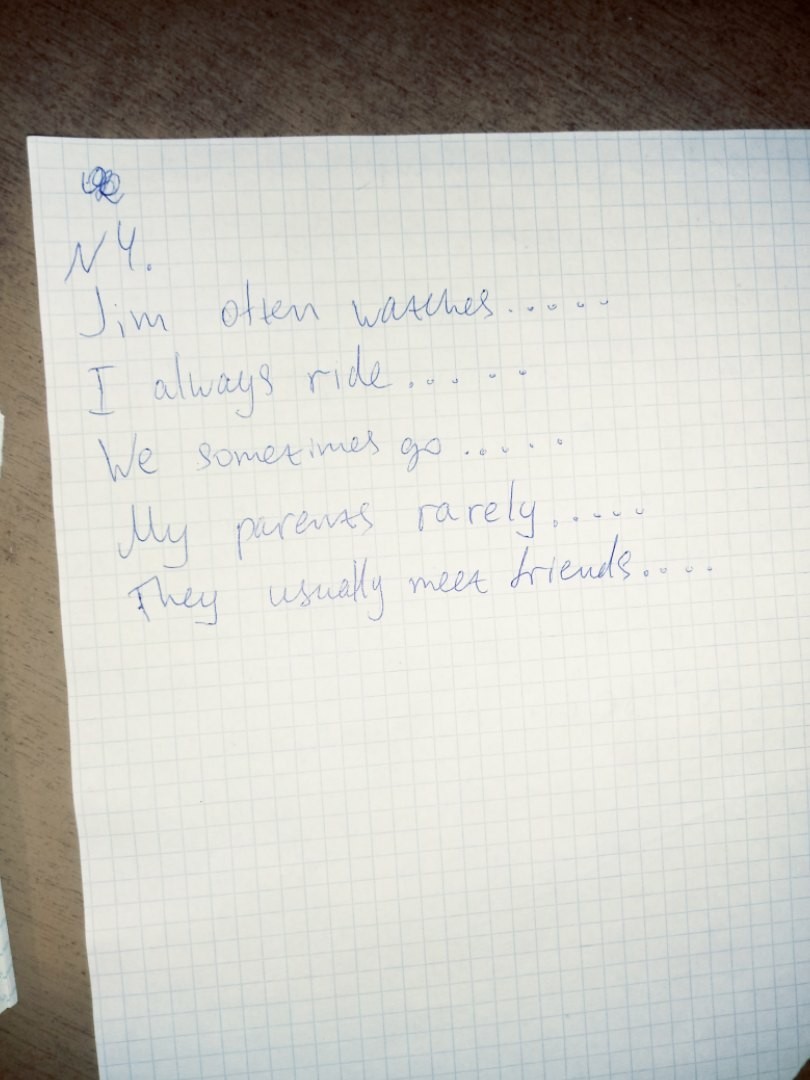 N4.
Jim often watches.....
I always ride.....
We sometimes go.....
My parents rarely.....
They usually meet friends....